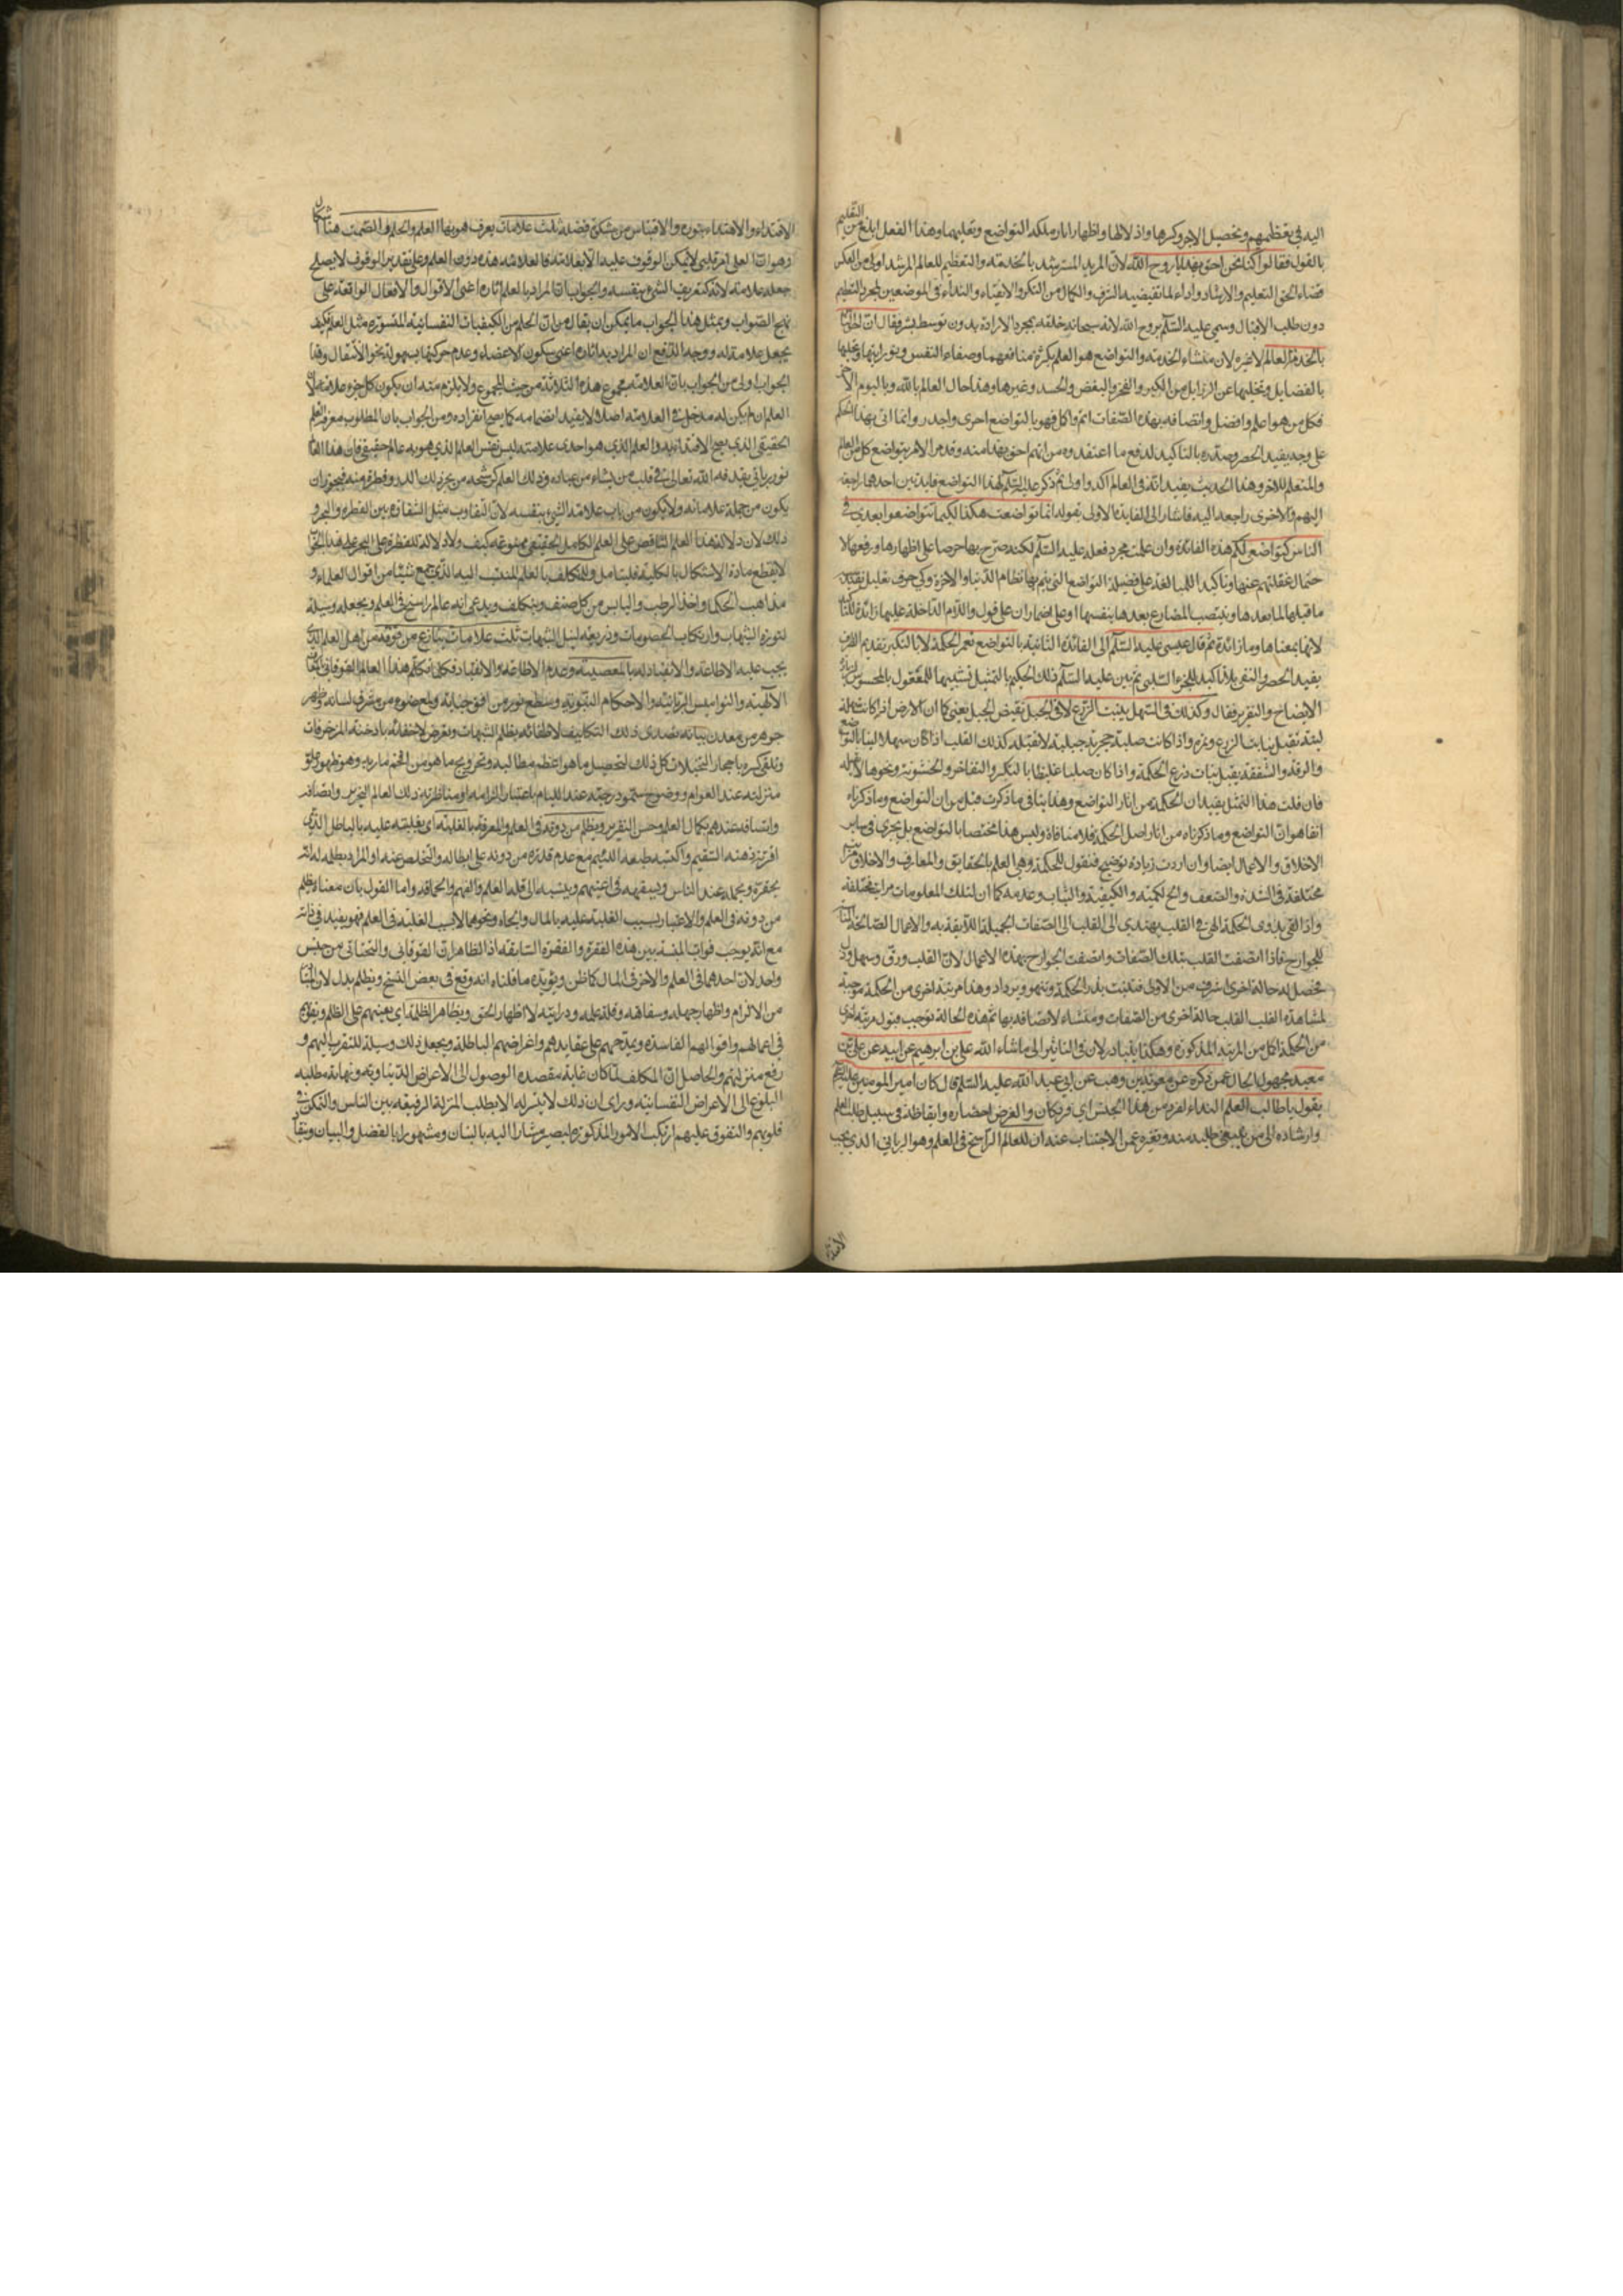 اليه في تعظيمهم وتحصيل الاجر وكسرها واذلالها واظهار اثار ملكه التواضع وتعليمها وهذا الفعل ابلغ من التعليم
بالقول فقالوا كنا نحن احق بهذا يا روح الله لان المريد المسترشد بالخدمة والتعظيم للعالم المرشد اولى من العكس
قضاء لحق التعليم والارشاد واداء لما تقتضيه الشرف والكمال من التكرم والانقياد والنداء في الموضعين لمجرد التعظيم
دون طلب الاقبال وسمي عليه السلام بروح الله لانه سبحانه خلقه بمجرد الارادة بدون توسط بشر فقال ان احق الناس
بالخدمة العالم لا غيره لان منشاء الخدمة والتواضع هو العلم بكثرة منافعهما وصفاء النفس ونورانيتها وتحليها
بالفضايل وتخليها عن الرذايل من الكبر والفخر والبغض والحسد وغيرها وهذا حال العالم بالله وباليوم الاخر
فكل من هو اعلم وافضل واتصافه بهذه الصفات اتم واكمل فهو بالتواضع احرى واجدر وانما اتى بهذا الحكم
على وجه يفيد الحصر وصدره بالتاكيد لدفع ما اعتقدوه من انهم احق بهذا منه وقد مر الامر بتواضع كل من العالم
والمتعلم للاخر وهذا الحديث يفيد انه في العالم اكد واولى ثم ذكر عليه السلام لهذا التواضع فايدتين احدهما راجعة
اليهم والاخرى راجعة اليه فاشار الى الفايدة الاولى بقوله انما تواضعت هكذا لكيما تتواضعوا بعدي في
الناس كتواضعي لكم هذه الفائدة وان علمت بمجرد فعله عليه السلام لكنه صرح بها حرصا على اظهارها ورفعا لا
حتمال غفلتهم عنها وتاكيدا للمبالغة على فضيلة التواضع التي يتم بها نظام الدنيا والاخرة وكي حرف تعليل يفيد
ما قبلها لما بعدها وينتصب المضارع بعدها بنفسها او على اضمار ان على قول واللام الداخلة عليها زائدة للتاكيد
لانها بمعناها وما زائدة ثم قال عيسى عليه السلام الى الفائدة الثانية بالتواضع تعمر الحكمة لا بالتكبر تقديم الظرف
يفيد الحصر والنفي بلا تاكيد للجزء السلبي ثم بين عليه السلام ذلك الحكيم بالتمثيل تشبيها للمعقول بالمحسوس لزيادة
الايضاح والتقرير فقال وكذلك في السهل ينبت الزرع لا في الجبل نقيض الجبل يعني كما ان الارض اذا كانت سهلة
لينة تقبل نبات الزرع ونموه واذا كانت صلبة حجرية جبلية لا تقبله كذلك القلب اذا كان سهلا لينا بالتواضع
والرقة والشفقة يقبل نبات زرع الحكمة واذا كان صلبا غليظا بالتكبر والتفاخر والخشونة ونحوها لا يقبله
فان قلت هذا التمثيل يفيد ان الحكمة من اثار التواضع وهذا ينافي ما ذكرت قبل من ان التواضع وما ذكرناه
انفا هو ان التواضع وما ذكرناه من اثار اصل الحكمة فلا منافاة وليس هذا مختصا بالتواضع بل يجري في ساير
الاخلاق والاعمال ايضا وان اردت زيادة توضيح فنقول للحكمة وهي العلم بالحقايق والمعارف والاخلاق مراتب
مختلفة في الشدة والضعف والكمية والكيفية والثبات وعدمه كما ان لتلك المعلومات مراتب مختلفة
واذا القي بذر الحكمة الهي في القلب يهتدي الى القلب الى الصفات الجميلة اللايقة به والاعمال الصالحة المناسبة
للجوارح فاذا اتصفت القلب بتلك الصفات واتصفت الجوارح بهذه الاعمال لان القلب ورق وسهل وذل
فحصل له حالة اخرى اشرف من الاولى فتنبت بذر الحكمة وتنمو ويزداد وهذا مرتبة اخرى من الحكمة موجبة
لمشاهدة القلب حالة اخرى من الصفات ومنشاء لاتصافه بها ثم هذه الحالة توجب قبول مرتبة اخرى
من الحكمة اكمل من المرتبة المذكورة وهكذا يتبادلان في التاثير الى ما شاء الله علي بن ابرهيم عن ابيه عن علي بن
معبد مجهول الحال عمن ذكره عن معوية بن وهب عن ابي عبد الله عليه السلام قال كان امير المومنين عليه السلام
يقول يا طالب العلم النداء لفرد من هذا الجنس اي فرد كان والغرض احضاره وايقاظه في سبيل طلب العلم
وارشاده الى من ينبغي طلبه منه وتغيره عمن الاجتناب عنه ان للعالم الراسخ في العلم وهو الرباني الذي يجب
الاقتداء
الاقتداء والاهتداء بنوره والاقتباس من مشكوة فضله ثلث علامات يعرف هو بها العلم والحلم والصمت هنا اشكال
وهو ان العلم امر قلبي لا يمكن الوقوف عليه الا بعلامة فالعلامة هذه دون العلم وعلى تقدير الوقوف لا يصلح
جعله علامة لانه كتعريف الشيء بنفسه والجواب ان المراد بالعلم اثاره اعني الاقوال والافعال الواقعة على
نهج الصواب وبمثل هذا الجواب ما يمكن ان يقال من ان الحلم من الكيفيات النفسانية المستورة مثل العلم فكيف
يجعل علامة له ووجه الدفع ان المراد به اثاره اعني سكون الاعضاء وعدم حركتها بسهولة نحو الانتقال وهذا
الجواب اولى من الجواب بان العلامة مجموع هذه الثلاثة من حيث المجموع ولا يلزم منه ان يكون كل جزء علامة لان
العلم ان لم يكن له مدخل في العلامة اصلا لا يفيد انضمامه كما يصح انفراده ومن الجواب بان المطلوب معرفة العلم
الحقيقي الذي يصح الاقتداء به والعلم الذي هو احدى علامته ليس نفس العلم الذي هو به عالم حقيقي فان هذا العلم
نور رباني يقذفه الله تعالى في قلب من يشاء من عباده وذلك العلم كرشحة من بحر ذلك النور وقطرة منه فيجوز ان
يكون من جملة علاماته ولا يكون من باب علامة الشيء بنفسه لان التفاوت مثل التفاوت بين القطرة والبحر و
ذلك لان دلالة هذا العلم الناقص على العلم الكامل الحقيقي ممنوعة كيف ولا دلالة للقطرة على البحر على هذا النحو
لا يقطع مادة الاشكال بالكلية فليتامل وللمتكلف بالعلم المنتسب اليه الذي يجمع شيئا من اقوال العلماء و
مذاهب الحكماء واخذ الرطب واليابس من كل صنف ويتكلف ويدعي انه عالم راسخ في العلم ويجعله وسيلة
لثورة الشبهات وارتكاب الخصومات وذريعة لنيل الشبهات ثلث علامات ينازع من فوقه من اهل العلم الذي
يجب عليه الاطاعة والانقياد له بالمعصية وعدم الاطاعة والانقياد فكلما تكلم هذا العالم الفوقاني بالمعارف
الالهية والنواميس الربانية والاحكام النبوية وسطع نور من افق جنانه ولمع ضوء من مشرق لسانه وظهر
جوهر من معدن بيانه تصدى ذلك التكاليف لاطفائه بظلم الشبهات وتعرض لاخفائه بادخنة المزخرفات
وتلقى كسره باحجار التخيلات كل ذلك لتحصيل ما هو اعظم مطالبه وترويج ما هو من اهم ماربه وهو ظهور علو
منزلته عند العوام ووضوح سمو درجته عند اللئام باعتبار الزامه او مناظرته ذلك العالم النحرير واتصافه
واتسامه عندهم بكمال العلم وحسن التقرير ويظلم من دونه في العلم والمعرفة بالغلبة اي بغلبته عليه بالباطل الذي
افرزته ذهنه السقيم واكتسبه طبعه اللئيم مع عدم قدرة من دونه على ابطاله والتخلص عنه او المراد بظلمه له انه
يحقره ويجهله عند الناس ويسفهه في اعينهم وينسبه الى قلة العلم والفهم والحماقة واما القول بان معناه يظلم
من دونه في العلم والاعتبار بسبب الغلبة عليه بالمال والجاه ونحوهما لا بسبب الغلبة في العلم فهو بعيد في ذاته
مع انه يوجب فوات المناسبة بين هذه الفقرة والفقرة السابقة اذ الظاهر ان الفوقاني والتحتاني من جنس
واحد لان احدهما في العلم والاخر في المال كما ظن ويؤيده ما قلناه انه وقع في بعض النسخ ويظلم بدل
من الالزام واظهار جهله وسفاهته وقلة علمه ودرايته لا اظهار الحق ويظاهر الظلمة اي يعينهم على الظلم ويقويهم
في اعمالهم واقوالهم الفاسدة ويمدحهم على عقايدهم واغراضهم الباطلة ويجعل ذلك وسيلة للتقرب اليهم و
رفع منزلتهم والحاصل ان المتكلف لما كان غاية مقصده الوصول الى الاعراض الدنياوية ونهاية مطلبه
البلوغ الى الاعراض النفسانية وراى ان ذلك لا يتيسر له الا بطلب المنزلة الرفيعة بين الناس والتمكن في
قلوبهم والتفوق عليهم ارتكب الامور المذكورة ليصير مشارا اليه بالبنان ومشهورا بالفضل والبيان